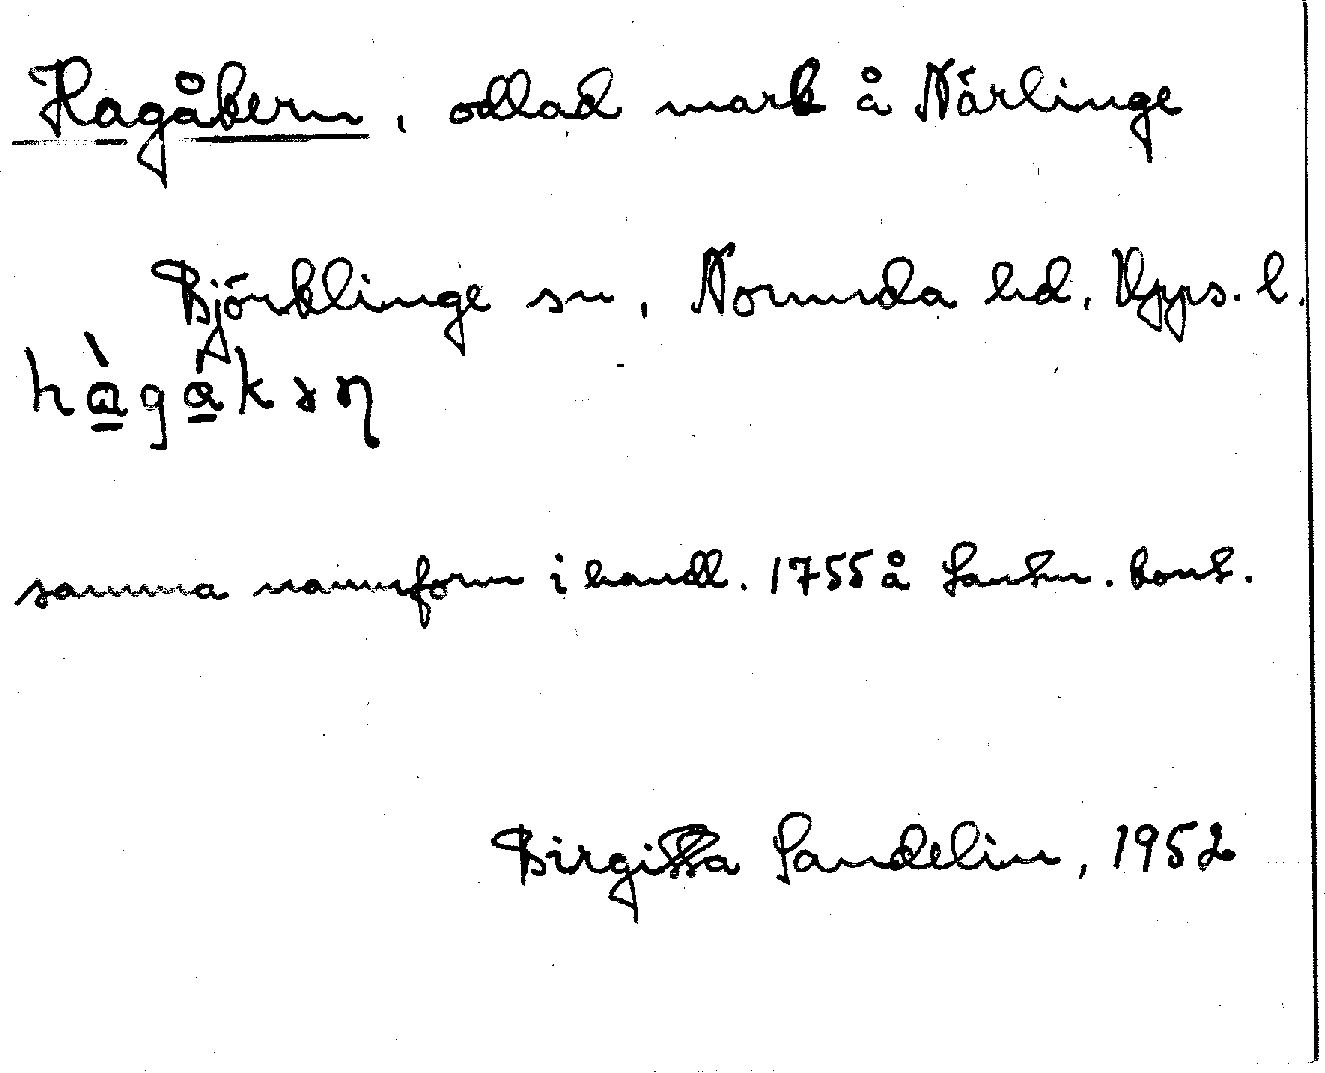 Hagåkern, odlad mark å Närlinge
Björklinge sn, Norunda hd, Upps. l.
hàgákən
samma namnform i handl. 1755 å Lantm. kont.
Birgitta Sandelin, 1952